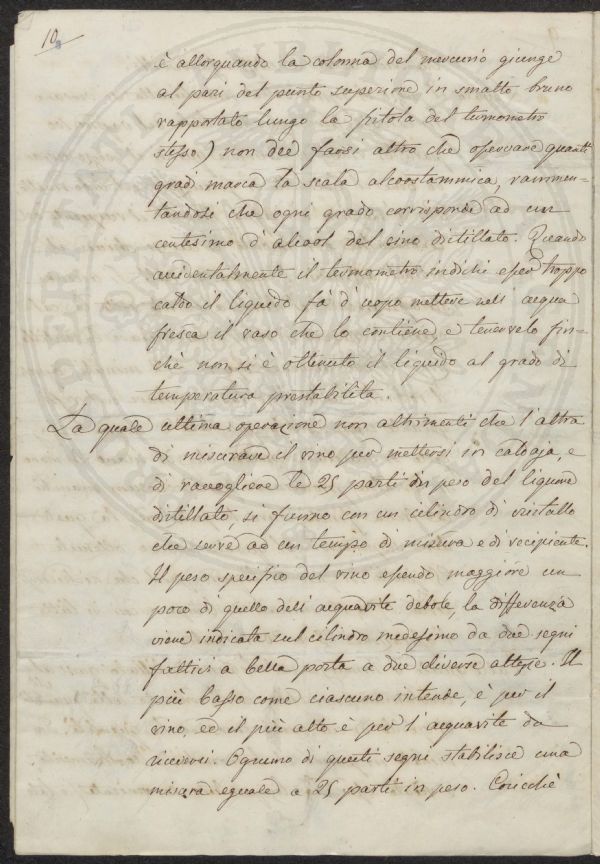 10
è allorquando la colonna del mercurio giunge
al pari del punto superiore in smalto bruno
rapportato lungo la fitola del termometro
stesso) non dee farsi altro che osservare quanti
gradi marca la scala alcoostammica, rammen-
tandosi che ogni grado corrisponde ad un
centesimo d'alcool del vino distillato. Quando
accidentalmente il termometro indichi esser troppo
caldo il liquido fà d'uopo mettere nell'acqua
fresca il vaso che lo contiene, e tenervelo fin-
chè non si è ottenuto il liquido al grado di
temperatura prestabilita.
La quale ultima operazione non altrimenti che l'altra
di misurare il vino per mettersi in caldaja, e
di raccogliere le 25 parti in peso del liquore
distillato, si fanno con un cilindro di cristallo
che serve ad un tempo di misura e di recipiente.
Il peso specifio del vino essendo maggiore un
poco di quello dell'acquavite debole, la differenza
viene indicata sul cilindro medesimo da due segni
fattivi a bella posta a due diverse altezze. Il
più basso come ciascuno intende, è per il
vino, ed il più alto è per l'acquavite da
riceversi. Ognuno di questi segni stabilisce una
misura eguale a 25 parti in peso. Coricchè